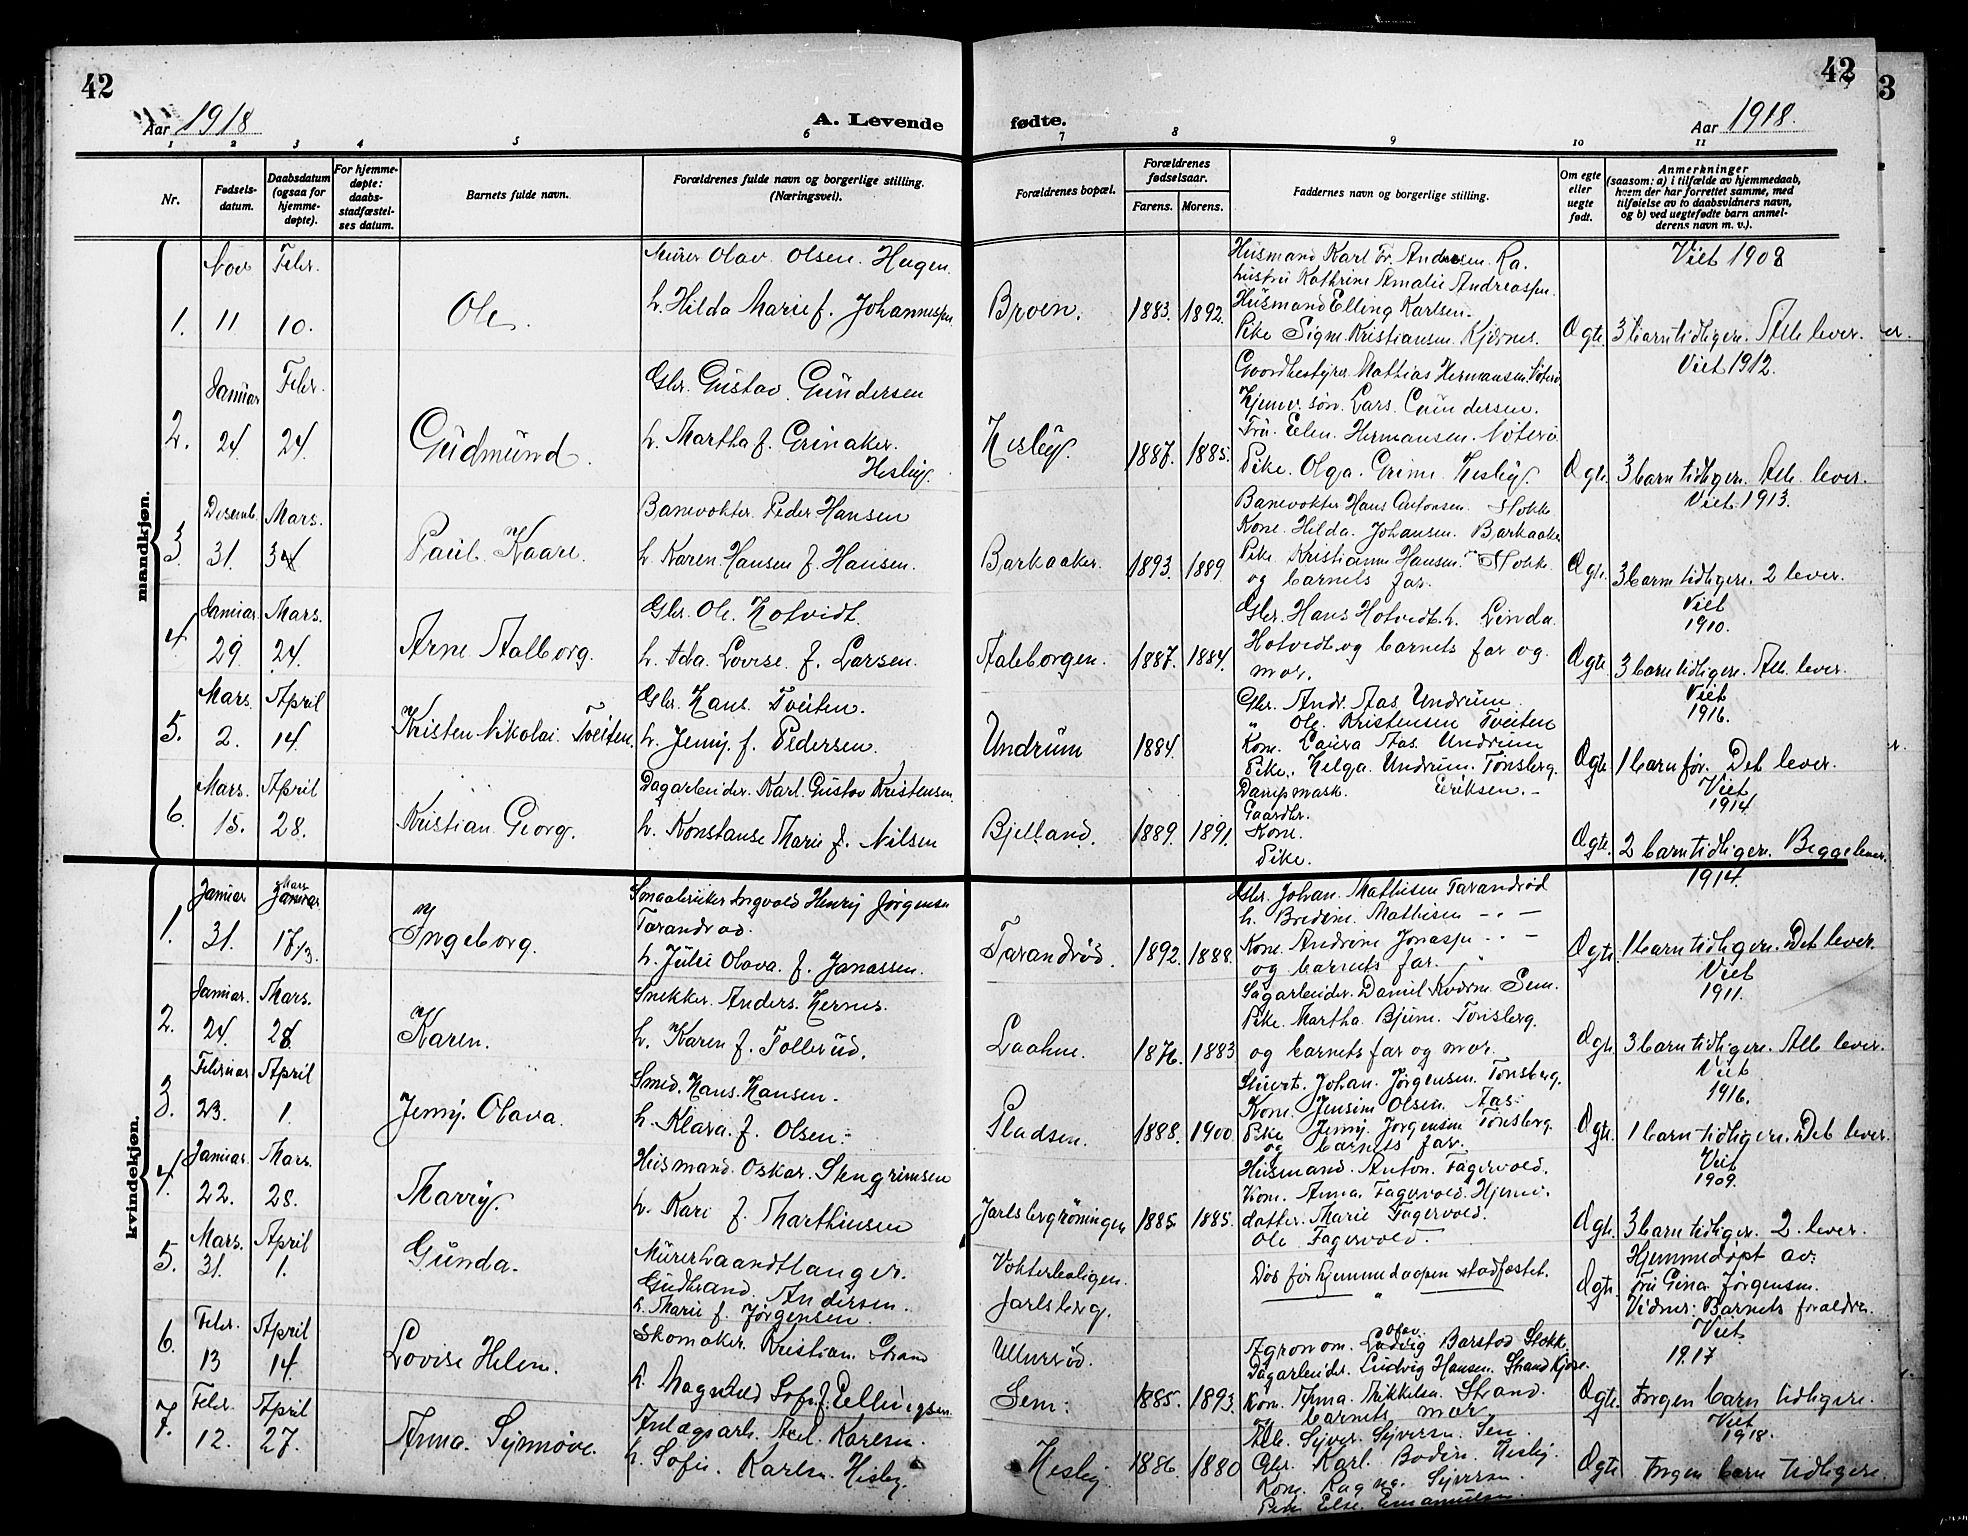 42
42
3
Aar 1918
A. Levende
fødte.
Aar 1918.
1 2 3 4 5 6 7 8 9 10 11
Nr.
Fødsels-
datum.
Daabsdatum
(ogsaa for
hjemme-
døpte).
For hjemme-
døpte:
daabs-
stadfæstel-
ses datum.
Barnets fulde navn.
Forældrenes fulde navn og borgerlige stilling.
(Næringsvei).
Forældrenes bopæl.
Forældrenes
fødselsaar.
Farens. Morens.
Faddernes navn og borgerlige stilling.
Om egte
eller
uegte
født.
Anmerkninger
(saasom: a) i tilfælde av hjemmedaab,
hvem der har forrettet samme, med
tilføielse av to daabsvidners navn,
og b) ved uegtefødte barn anmel-
derens navn m. v.).
mandkjøn.
1.
Nov
11
Febr.
10.
Ole.
Murer Olav Olsen Haugen
h. Hilda Marie f. Johannesen
Broen.
1883. 1892.
Husmand Karl Fr. Andresen. Ra.
hustru Kathrine Amalie Andreassen.
Husmand Elling Karlsen.
Pike Signe Kristiansen. Kjærnes.
Ægte
Viet 1908
3 barn tidligere. Alle lever.
2.
Januar
24
Febr.
24.
Gudmund.
Gbr. Gustav Gundersen
h. Martha f. Grinaker.
Hesby.
Hesby.
1887. 1885.
Gaardbestyrer Mathias Hermansen. Nøterø
Hjemv. søn. Lars Gundersen.
Fru. Ellen Hermansen. Nøterø
Pike. Olga Grime Hesby.
Ægte
Viet 1912.
3 barn tidligere. Alle lever.
3
Desemb.
31.
Mars.
3
Paul Kaare.
Banevokter Peder Hansen
h. Karen Hansen f. Hansen.
Barkaaker.
1893. 1889.
Banevokter Hans Antonsen. Stokke
Kone. Hilda Johansen. Barkaaker
Pike Kristianne Hansen. Stokke.
og barnets far.
Ægte.
Viet 1913.
3 barn tidligere. 2 lever.
4
Januar.
29.
Mars.
24.
Arne Aalborg.
Gbr. Ole Hotvedt.
h. Ada Lovise f. Larsen.
Aaleborgen.
1887. 1884.
Gbr. Hans Hotvedt. h. Linda
Hotvedt og barnets far og
mor.
Ægte
Viet
1910.
3 barn tidligere. Alle lever.
5.
Mars.
2.
April
14.
Kristen Nikolai Tveiten.
Gbr. Hans Tveiten.
h. Jenny f. Pedersen.
Undrum
1884.
Gbr. Andr. Aas Undrum.
" Ole Kristensen Tveiten
Kone Laura Aas Undrum
Pike. Helga Undrum. Tønsberg.
Ægte
Viet
1916.
1 barn før. Det lever.
6.
Mars.
15.
April
28.
Kristian Georg.
Dagarbeider. Karl Gustav Kristensen.
h. Konstanse Marie f. Nilsen
Bjelland.
1889. 1891.
Dampmask. Eriksen.
Gaardbr.
Kone.
Pike.
Ægte.
Viet
1914.
2 barn tidligere. Begge lever.
kvindekjøn.
1.
Januar
31.
Mars
Januar
17/3.
Ingeborg.
Smaabruker Ingvald Henry Jørgensen
Tarandrød.
h. Julie Olava. f. Jonassen.
Tarandrød.
1892. 1888.
Gbr. Johan Mathisen Tarandrød
h. Bredine Mathisen
Kone Andrine Jonassen
og barnets far.
Ægte.
1914.
1 barn tidligere. Det lever.
2.
Januar.
24.
Mars.
28.
Karen.
Snekker. Anders Hernes.
h. Karen f. Tollerud.
Laahne.
1876. 1883
Sagarbeider. Daniel Kværne Sem.
Pike. Martha Bjune. Tønsberg.
og barnets far og mor.
Ægte
Viet
1911.
3 barn tidligere. Alle lever.
3.
Februar
23.
April
1.
Jenny Olava.
Smed. Hans Hansen.
h. Klara. f. Olsen.
Pladsen.
1888. 1900
Stuert. Johan Jørgensen. Tønsberg.
Kone. Jensine Olsen. Aas.
Pike Jenny Jørgensen Tønsberg.
og barnets far.
Ægte.
Viet
1916.
1 barn tidligere. Det lever.
4.
Januar.
22.
Mars.
28.
Marry.
Husmand. Oskar Stengrimsen
h. Kari f. Marthinsen
Jarlsbergrøningen
1885. 1885.
Husmand. Anton Fagervold.
Kone. Anna Fagervold. Hjemv.
datter. Marie Fagervold.
Ole Fagervold.
Ægte.
Viet
1909.
3 barn tidligere. 2 lever.
5.
Mars.
31.
April
1.
Gunda.
Murerhaandtlanger.
Gudbrand Andersen.
h. Marie f. Jørgensen.
Vokterboligen.
Jarlsberg.
Død før hjemmedaapen stadfæstet.
Ægte
Hjemmedøpt av:
Fru Gina Jørgensen.
Vidner: Barnets forældre.
6.
Febr.
13
April
14.
Lovise Helen.
Skomaker. Kristian Strand
h. Magnhild Sofie f. Ellingsen
Ullersrød.
Sem.
1885. 1893.
Agronom. Olav Barstad Stokke.
Dagarbeider. Ludvig Hansen. Strand
Kone. Anna Mikkelsen Strand.
og barnets mor.
Ægte.
Viet
1917
Ingen barn tidligere.
7.
Febr.
12.
April
27.
Anna Synnøve.
Anlægsarb. Axel Karlsen.
h. Sofie Karlsen Hesby.
Hesby
1886. 1880
Arb. Syver Syversen. Sem.
Gbr. Karl Bodin. Hesby.
Kone. Ragna Syversen.
Pike Else Emanuelsen.
Ægte
Viet
1918.
Ingen barn tidligere.